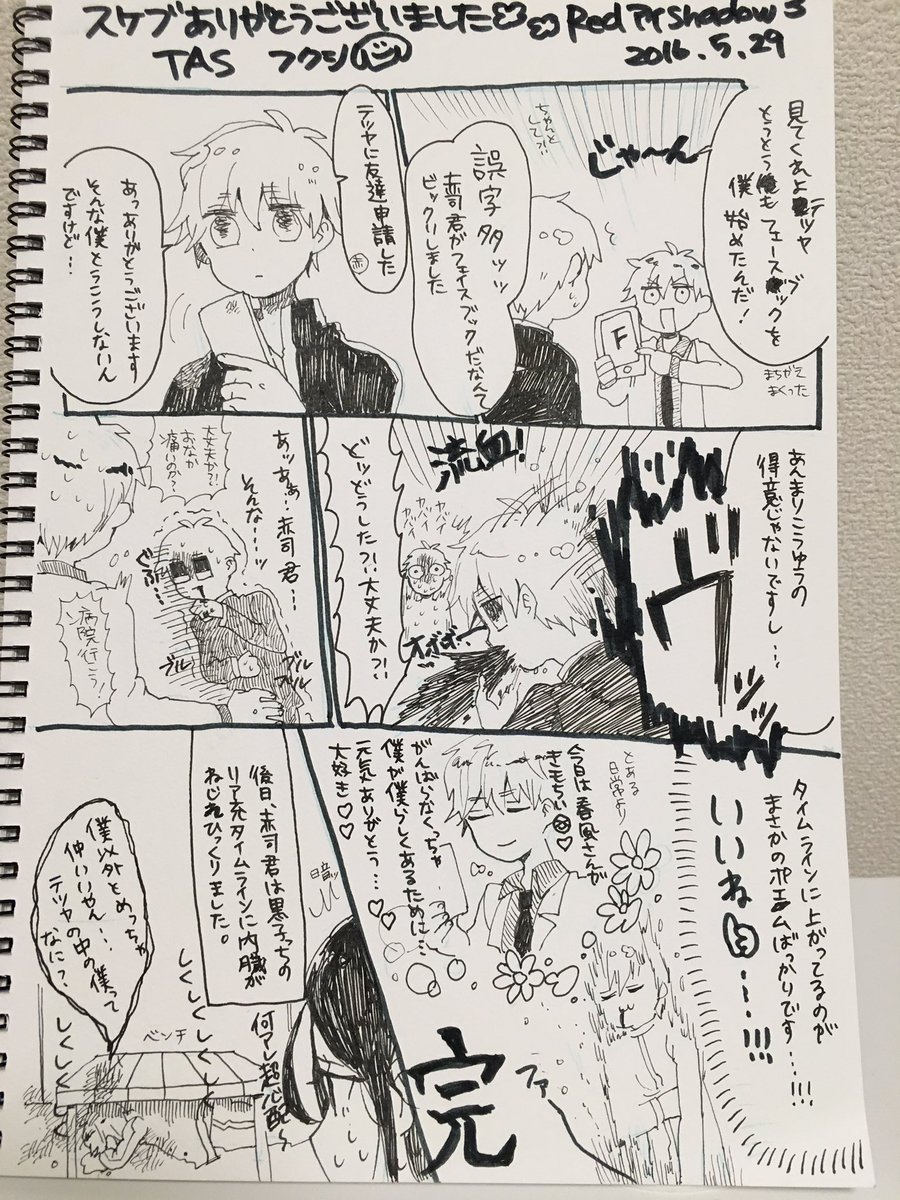 スケブありがとうございました
Red Ar shadow 3
TAS フクシ
2016.5.29
見てくれよテツヤ
とうとう僕もフェースブックを
始めたんだ!
じゃ〜ん
F
まちがえ
まくった
ちゃんと
して?!
誤字多ッッ
赤司君がフェイスブックだなんて
ビックリしました
テツヤに友達申請した
赤
あっありがとうございます
そんな僕とうこうしないん
ですけど…
あんまりこうゆうの
得意じゃないですし…
流血!
ヤバイ
ヤバイ
オボボ…
どッどうした?!大丈夫か?!
あッあぁ…赤司君…
そんな…
大丈夫か?!
おなか
痛いの?
病院行こう?!
ブル
ブル
ブル
タイムラインに上がってるのが
まさかのポエムばっかりです…!!!
いいね…!!!
とある
日常より
今日は春風さんが
きもちぃ♡
がんばらなくっちゃ
僕が僕らしくあるために…
元気ありがとう…♡
大好き♡♡
ファ
後日、赤司君は黒子っちの
リア充タイムラインに内臓が
ねじれひっくりました。
何アレ超心配〜
僕以外とめっちゃ
仲いいやん…
テツヤの中の僕って
なに?
しくしくしくしく
しくしくしく…
ベンチ
完